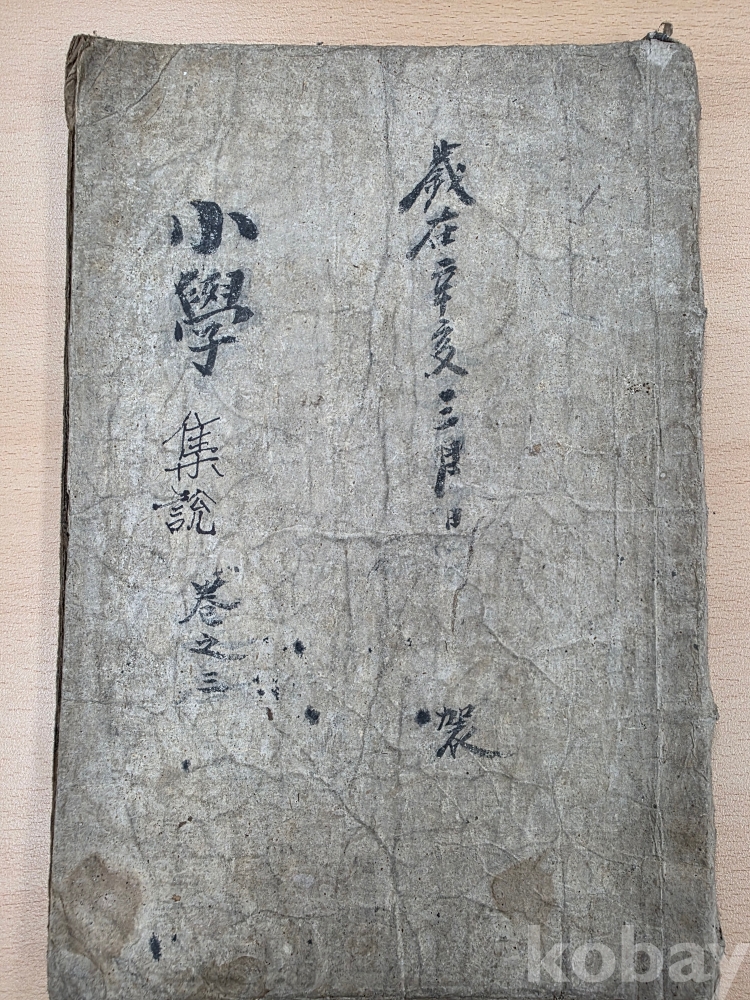 歲在辛亥三月日
小學 集說 卷之三
kobay